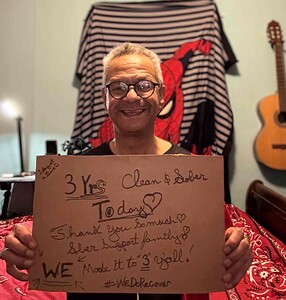 3 Yrs Clean & Sober
Today♡
Thank You So much♡
Sber Support family♡
WE Made it to "3" y'all!
#WeDoRecover